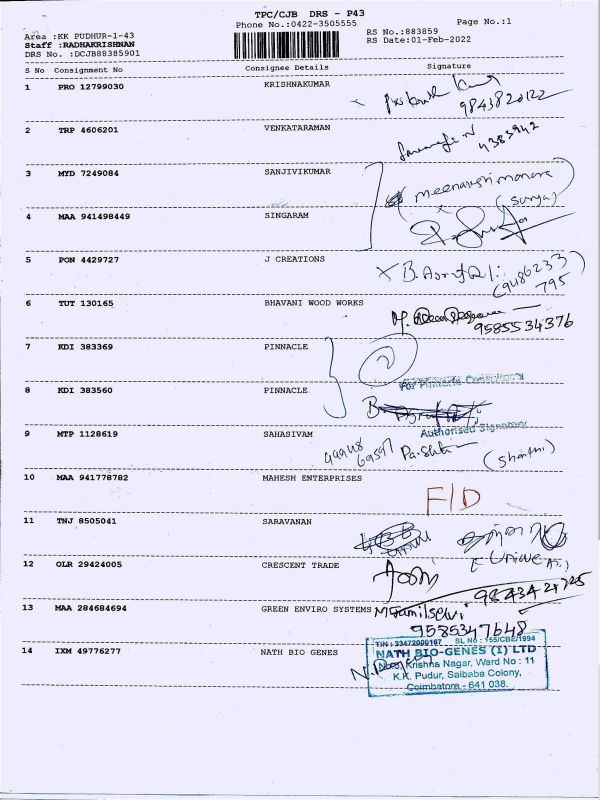 TPC/CJB DRS - P43
Phone No.:0422-3505555
Page No.:1
Area :KK PUDHUR-1-43
Staff :RADHAKRISHNAN
DRS No. :DCJB88385901
RS No.:883859
RS Date:01-Feb-2022
S No Consignment No Consignee Details Signature
1 PRO 12799030 KRISHNAKUMAR
9843820122
2 TRP 4606201 VENKATARAMAN
4383942
3 MYD 7249084 SANJIVIKUMAR
(surya)
4 MAA 941498449 SINGARAM
5 PON 4429727 J CREATIONS
(9486233
795
6 TUT 130165 BHAVANI WOOD WORKS
9585534376
7 KDI 383369 PINNACLE
For Pinnacle
8 KDI 383560 PINNACLE
Authorised Signatory
9 MTP 1128619 SAHASIVAM
(Shanthi)
10 MAA 941778782 MAHESH ENTERPRISES
F/D
11 TNJ 8505041 SARAVANAN
12 OLR 29424005 CRESCENT TRADE
13 MAA 284684694 GREEN ENVIRO SYSTEMS M Tamilselvi
9585347648
14 IXM 49776277 NATH BIO GENES
TIN : 33472000167 SL NO : 155/CBE/1994
NATH BIO-GENES (I) LTD
Krishna Nagar, Ward No : 11
K.K. Pudur, Saibaba Colony,
Coimbatore - 641 038.